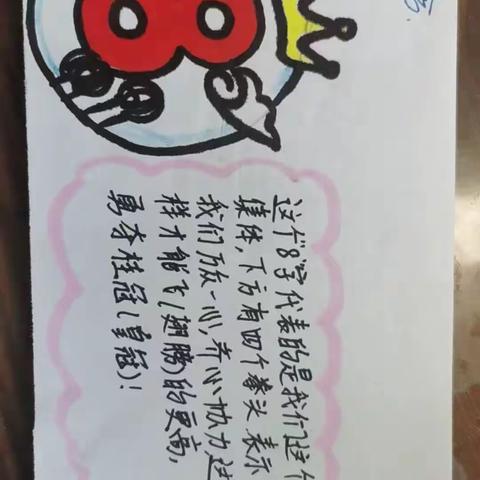 8
这个“8”字代表的是我们这个
集体,下方有四个拳头表示
我们万众一心,齐心协力这
样才能飞(翅膀)的更高,
勇夺桂冠(皇冠)!